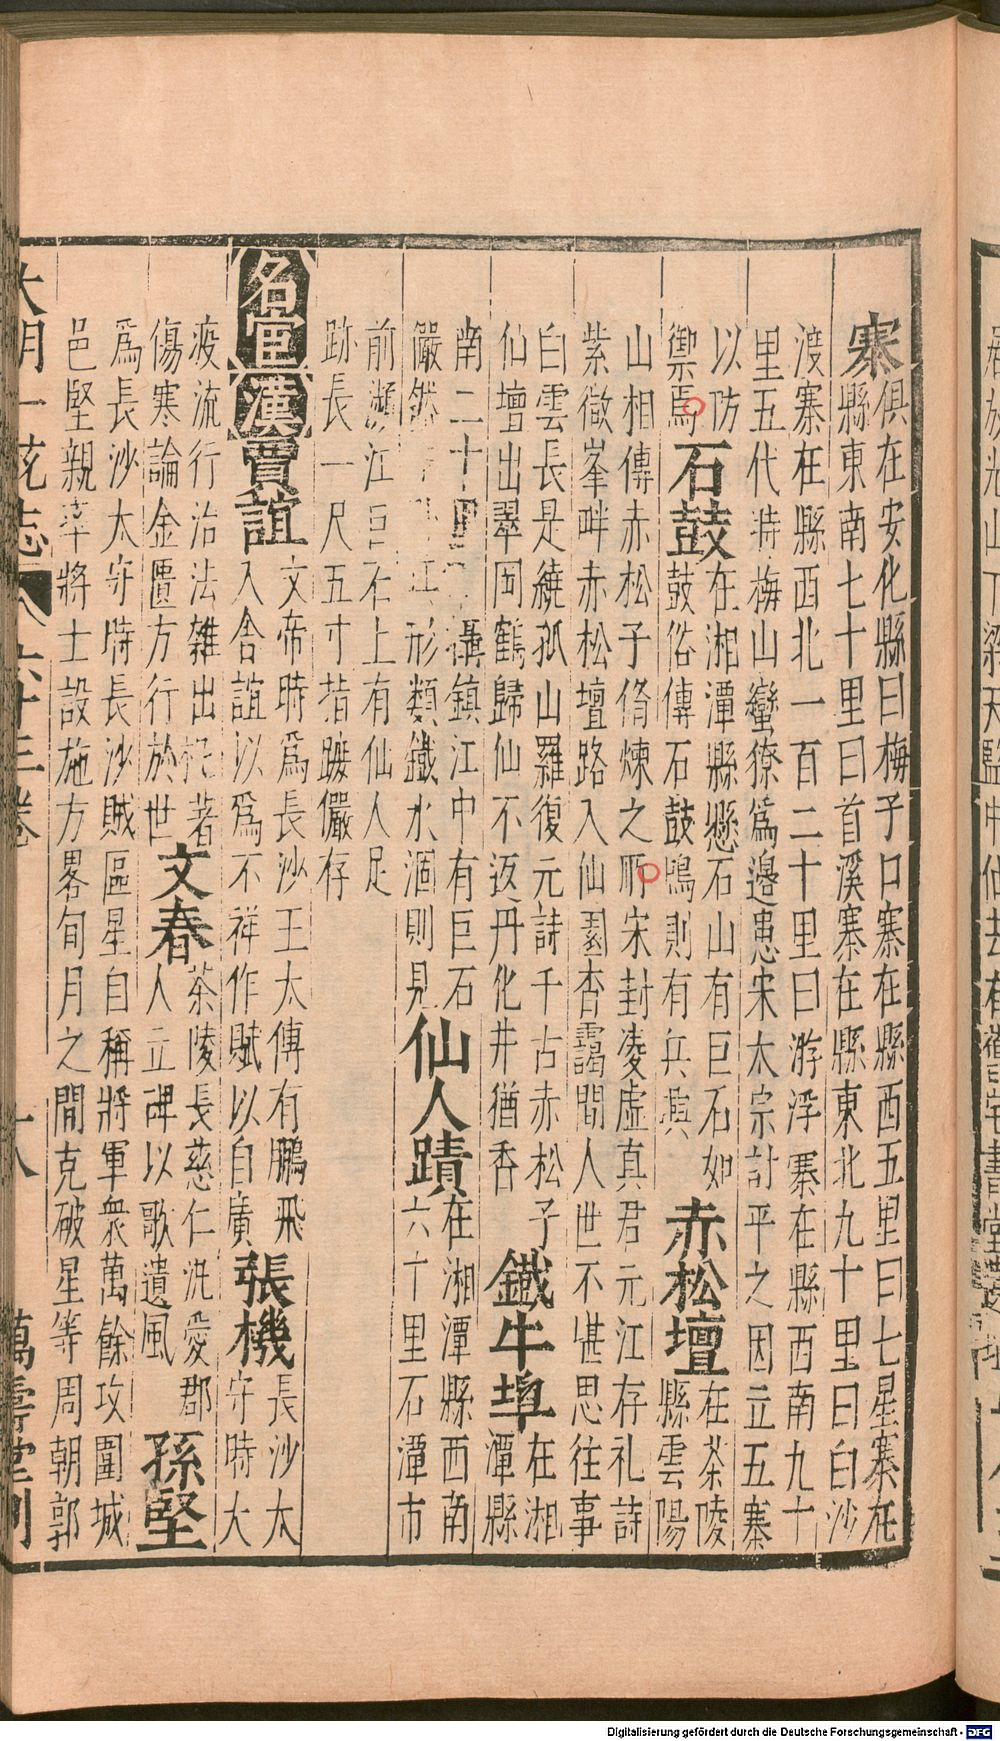 寨俱在安化縣曰梅子口寨在縣西五里曰七星寨在
縣東南七十里曰首溪寨在縣東北九十里曰白沙
渡寨在縣西北一百二十里曰游浮寨在縣西南九十
里五代時梅山蠻獠為邊患宋太宗討平之因立五寨
以防
禦焉
石鼓
在湘潭縣懸石山有巨石如
鼓俗傳石鼓鳴則有兵興
赤松壇
在茶陵
縣雲陽
山相傳赤松子脩煉之所宋封凌虛真君元江存礼詩
紫微峯畔赤松壇路入仙園杳靄間人世不堪思往事
白雲長是繞孤山羅復元詩千古赤松子
仙壇出翠岡鶴歸仙不返丹化井猶香
鐵牛埠
在湘
潭縣
南二十里 鎮江中有巨石
儼然 江 形類鐵水涸則見
仙人蹟
在湘潭縣西南
六十里石潭市
前瀕江巨石上有仙人足
跡長一尺五寸指蹤儼存
名宦
漢
賈誼
文帝時為長沙王太傅有鵬飛
入舍誼以為不祥作賦以自廣
張機
長沙太
守時大
疫流行治法雜出 著
傷寒論金匱方行於世
文春
茶陵長慈仁洪愛郡
人立碑以歌遺風
孫堅
為長沙太守時長沙賊區星自稱將軍衆萬餘攻圍城
邑堅親率將士設施方畧旬月之間克破星等周朝郭
大明一 志 八 六十三卷 十八 萬壽堂刊
Digitalisierung gefördert durch die Deutsche Forschungsgemeinschaft - DFG